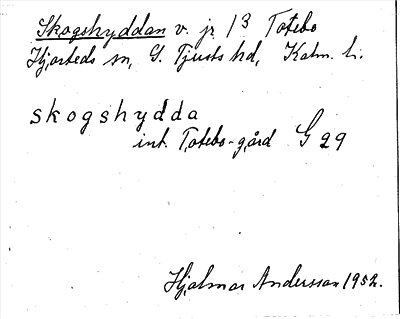 Skogshyddan v. jr 13 Totebo
Hjorteds sn, S. Tjusts hd, Kalm. l.
skogshydda
int. Totebo-gård G 29
Hjalmar Andersson 1952.